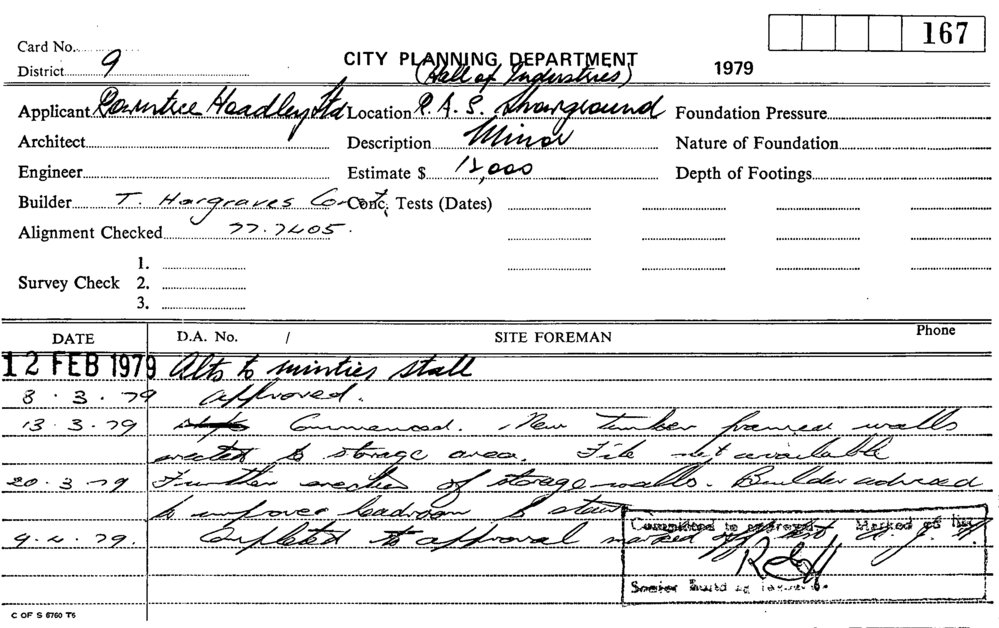 167
Card No.
CITY PLANNING DEPARTMENT
District 9
(Hall of Industries)
1979
Applicant Rowntree Hoadley Ltd Location R.A.S. Showground Foundation Pressure
Architect Description Minor Nature of Foundation
Engineer Estimate $ 12,000 Depth of Footings
Builder T. Hargraves Const. Conc. Tests (Dates)
Alignment Checked 77.7405.
1.
Survey Check 2.
3.
DATE D.A. No. / SITE FOREMAN Phone
12 FEB 1979 Alts to minties stall
8.3.79 approved.
13.3.79 Commenced. New timber framed walls
erected to storage area. File not available
20.3.79 Further erection of storage walls. Builder advised
to improve headroom to stair
9.4.79. Completed to approval marked off list
Completed to approval Marked off list
Senior Building Inspector.
C OF S 6760 T6